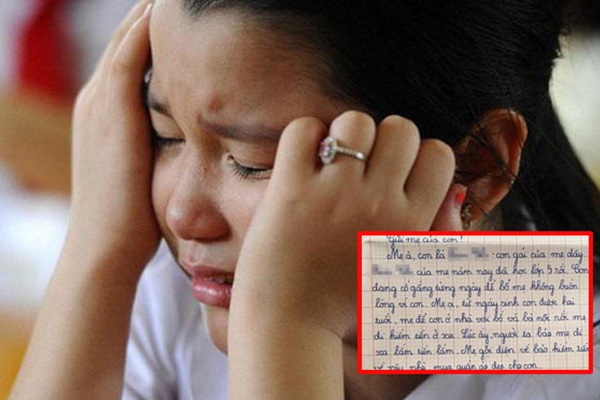 Gửi mẹ của con!
Mẹ à, con là - con gái của mẹ đây.
của mẹ năm nay đã học lớp 5 rồi. Con
đang cố gắng từng ngày để bố mẹ không buồn
lòng vì con. Mẹ ạ, từ ngày sinh con được hai
tuổi, mẹ để con ở nhà với bố và bà nội rồi mẹ
đi kiếm tiền ở xa. Lúc ấy, người ta bảo mẹ đi
xa lắm tiền lắm. Mẹ gọi điện về bảo kiếm tiền
về xây nhà, mua quần áo đẹp cho con.